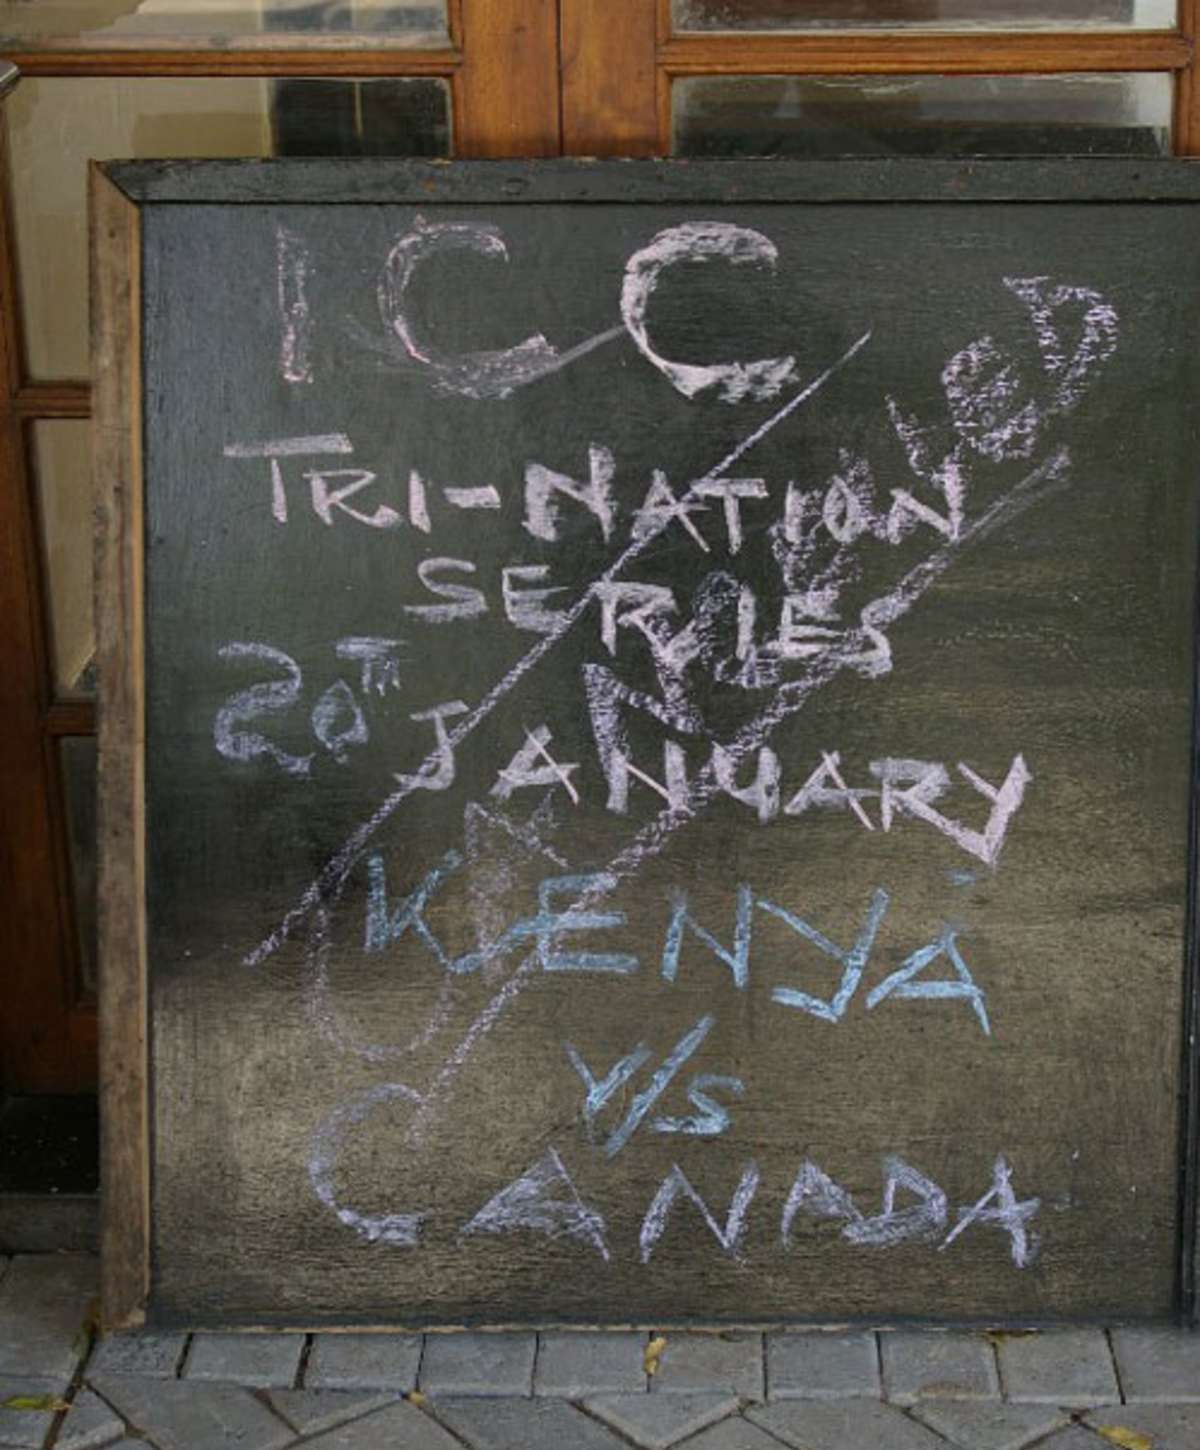 ICC
TRI-NATION
SERIES
20TH JANUARY
KENYA
V/S
CANADA
CANCELLED